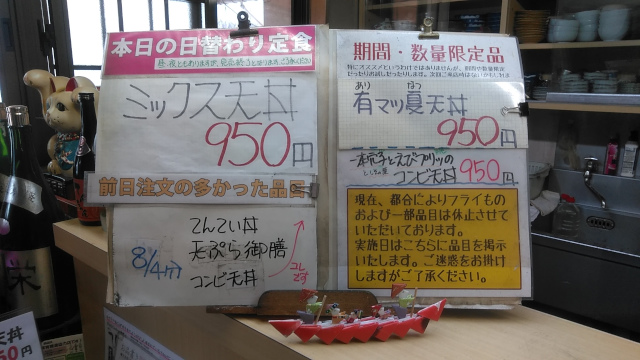 本日の日替わり定食
ミックス天丼
950円
前日注文の多かった品目
8/4分
てんてい丼
天ぷら御膳
コンビ天丼
コレです
期間・数量限定品
有マッ夏天丼
あり
はつ
950円
コンビ天丼 950円
現在、都合によりフライもの
および一部品目は休止させて
いただいております。
実施日はこちらに品目を掲示
いたします。ご迷惑をお掛け
しますがご了承ください。
栄
天丼
50円